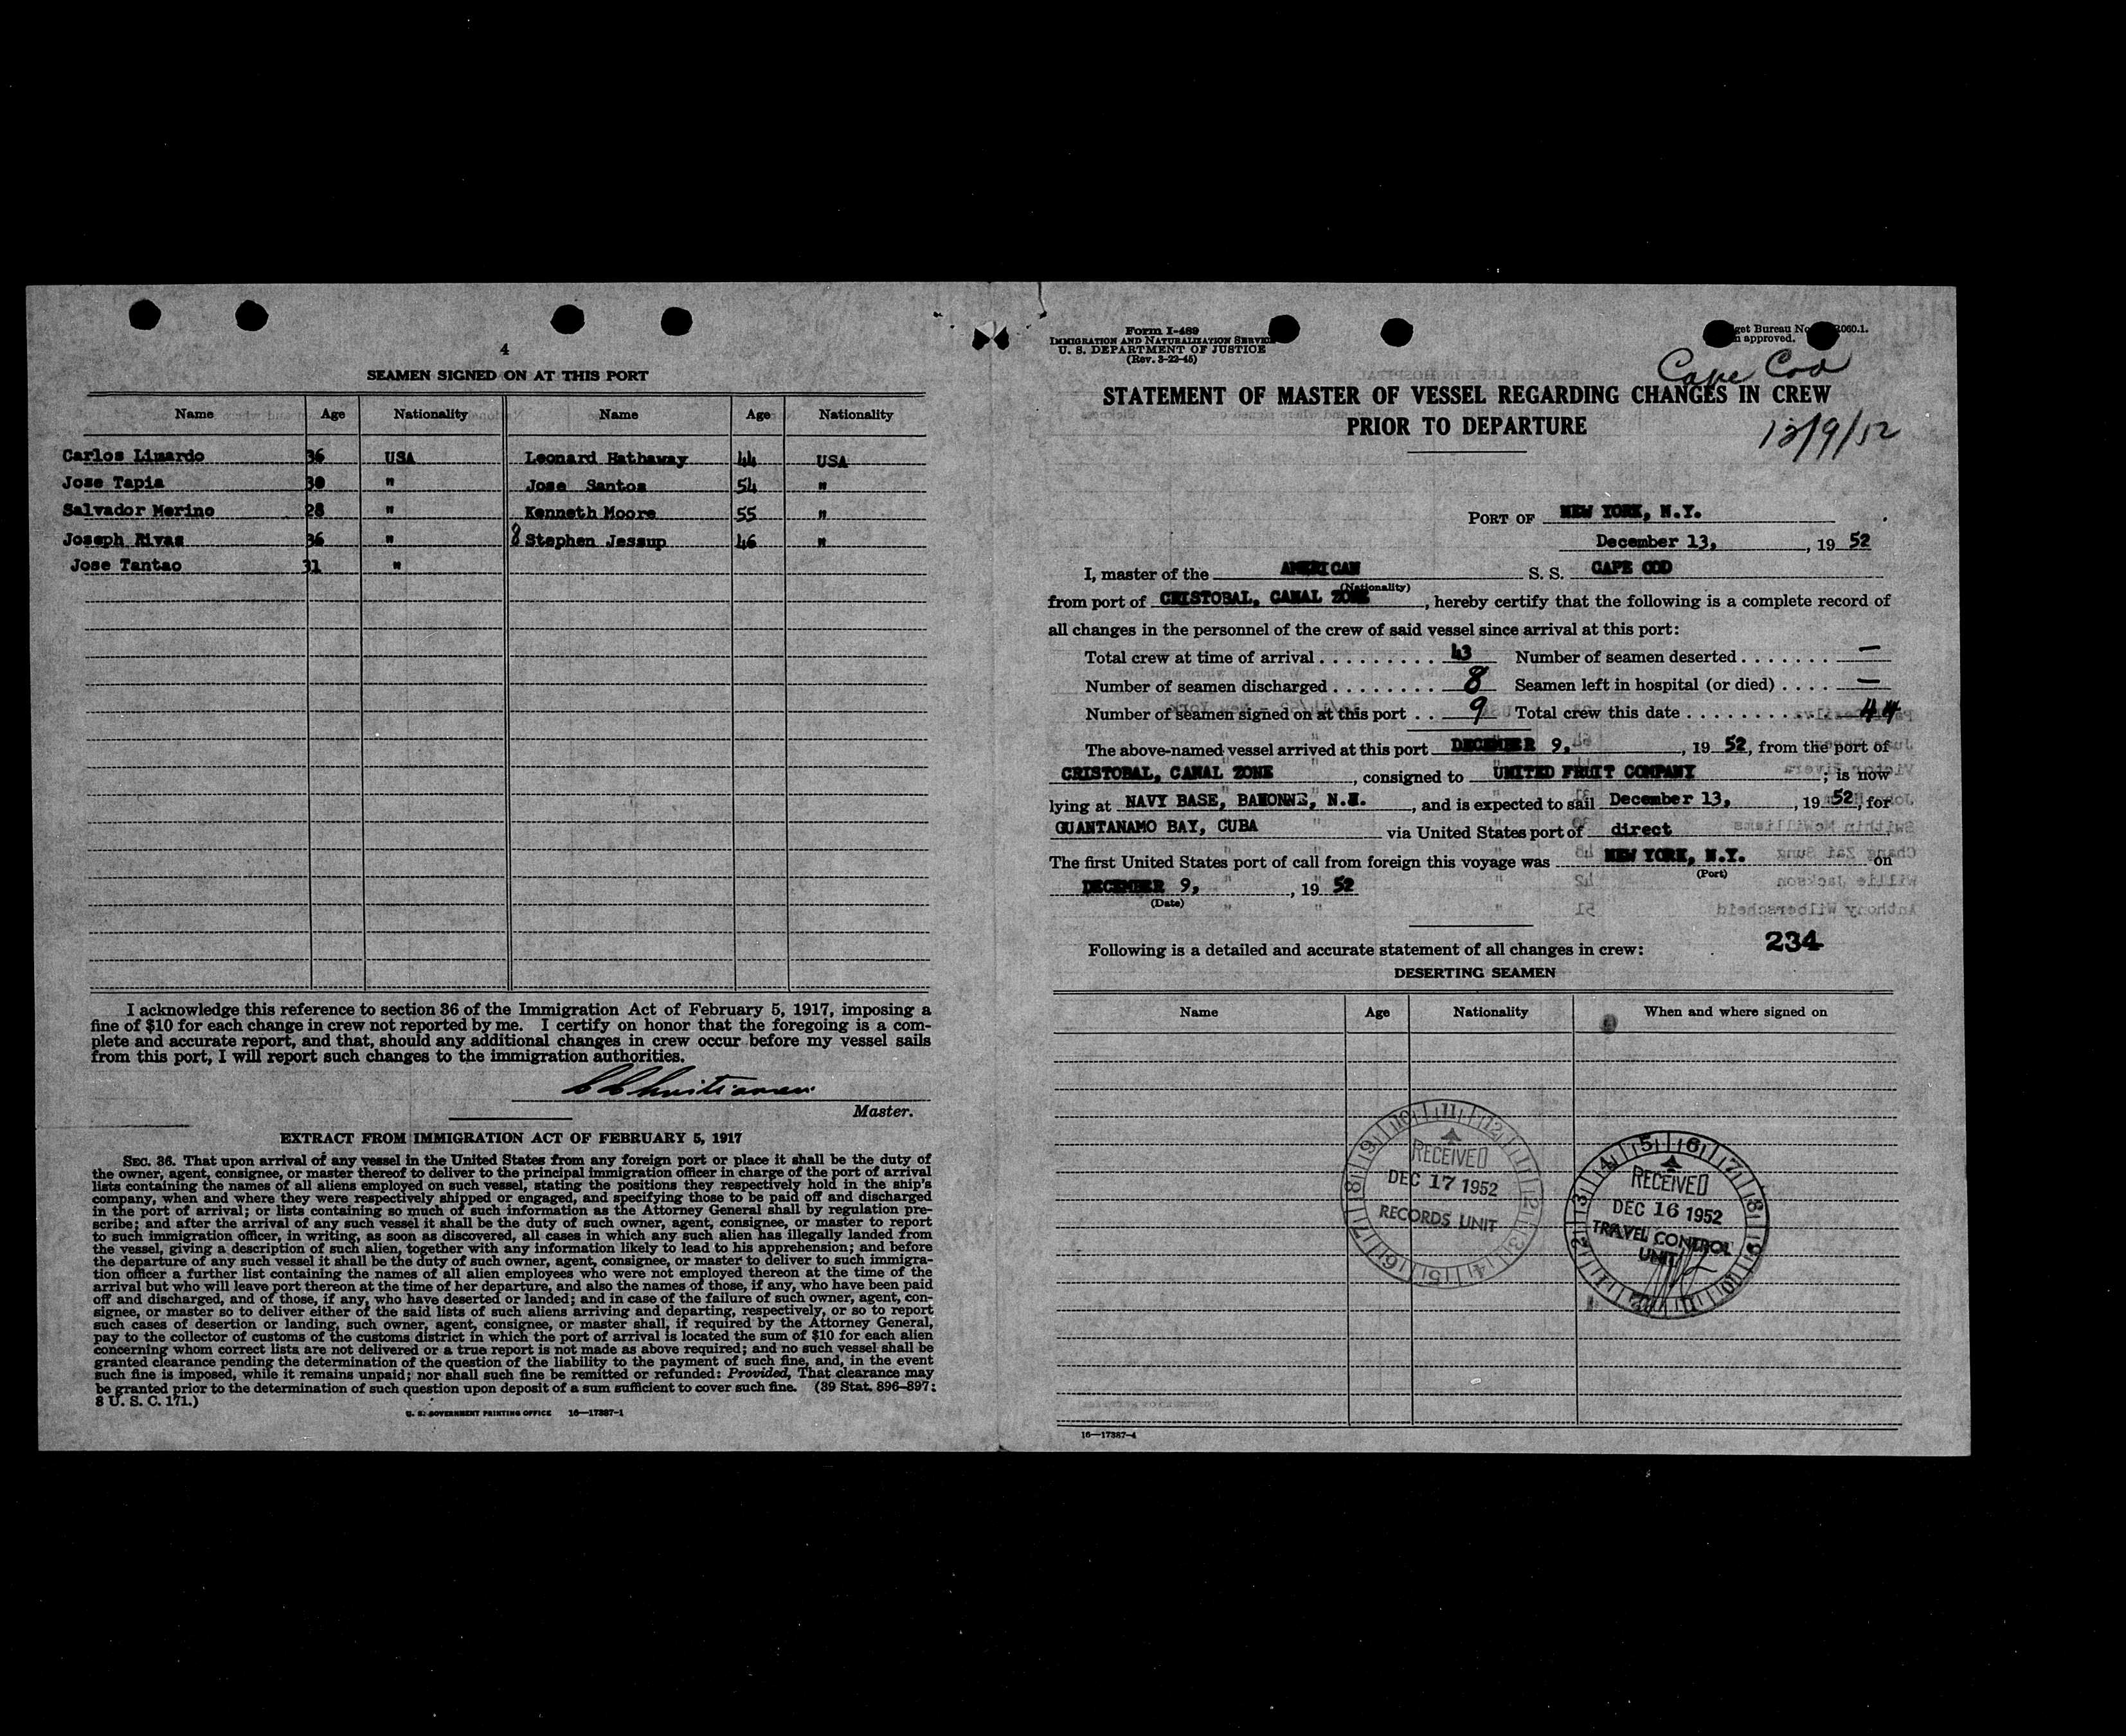 4
SEAMEN SIGNED ON AT THIS PORT
Name Age Nationality Name Age Nationality
Carlos Linardo 36 USA Leonard Hathaway 44 USA
Jose Tapia 30 " Jose Santos 54 "
Salvador Merino 28 " Kenneth Moore 55 "
Joseph Rivas 36 " 8 Stephen Jessup 46 "
Jose Tantao 31 "
I acknowledge this reference to section 36 of the Immigration Act of February 5, 1917, imposing a
fine of $10 for each change in crew not reported by me. I certify on honor that the foregoing is a com-
plete and accurate report, and that, should any additional changes in crew occur before my vessel sails
from this port, I will report such changes to the immigration authorities.
Master.
EXTRACT FROM IMMIGRATION ACT OF FEBRUARY 5, 1917
SEC. 36. That upon arrival of any vessel in the United States from any foreign port or place it shall be the duty of
the owner, agent, consignee, or master thereof to deliver to the principal immigration officer in charge of the port of arrival
lists containing the names of all aliens employed on such vessel, stating the positions they respectively hold in the ship's
company, when and where they were respectively shipped or engaged, and specifying those to be paid off and discharged
in the port of arrival; or lists containing so much of such information as the Attorney General shall by regulation pre-
scribe; and after the arrival of any such vessel it shall be the duty of such owner, agent, consignee, or master to report
to such immigration officer, in writing, as soon as discovered, all cases in which any such alien has illegally landed from
the vessel, giving a description of such alien, together with any information likely to lead to his apprehension; and before
the departure of any such vessel it shall be the duty of such owner, agent, consignee, or master to deliver to such immigra-
tion officer a further list containing the names of all alien employees who were not employed thereon at the time of the
arrival but who will leave port thereon at the time of her departure, and also the names of those, if any, who have been paid
off and discharged, and of those, if any, who have deserted or landed; and in case of the failure of such owner, agent, con-
signee, or master so to deliver either of the said lists of such aliens arriving and departing, respectively, or so to report
such cases of desertion or landing, such owner, agent, consignee, or master shall, if required by the Attorney General,
pay to the collector of customs of the customs district in which the port of arrival is located the sum of $10 for each alien
concerning whom correct lists are not delivered or a true report is not made as above required; and no such vessel shall be
granted clearance pending the determination of the question of the liability to the payment of such fine, and, in the event
such fine is imposed, while it remains unpaid; nor shall such fine be remitted or refunded: Provided, That clearance may
be granted prior to the determination of such question upon deposit of a sum sufficient to cover such fine. (39 Stat. 896-897;
8 U. S. C. 171.)
U. S. GOVERNMENT PRINTING OFFICE 16—17387-1
Form I-489
IMMIGRATION AND NATURALIZATION SERVICE
U. S. DEPARTMENT OF JUSTICE
(Rev. 3-22-45)
get Bureau No. 2060.1.
approved.
Cape Cod
STATEMENT OF MASTER OF VESSEL REGARDING CHANGES IN CREW
PRIOR TO DEPARTURE
12/9/52
PORT OF NEW YORK, N.Y.
December 13, , 19 52
I, master of the AMERICAN S. S. CAPE COD
(Nationality)
from port of CRISTOBAL, CANAL ZONE , hereby certify that the following is a complete record of
all changes in the personnel of the crew of said vessel since arrival at this port:
Total crew at time of arrival . . . . . . . . . 43 Number of seamen deserted . . . . . . . —
Number of seamen discharged . . . . . . . . 8 Seamen left in hospital (or died) . . . . —
Number of seamen signed on at this port . . 9 Total crew this date . . . . . . . . . . . 44
The above-named vessel arrived at this port DECEMBER 9, , 19 52, from the port of
CRISTOBAL, CANAL ZONE , consigned to UNITED FRUIT COMPANY ; is now
lying at NAVY BASE, BAYONNE, N.J. , and is expected to sail December 13, , 19 52, for
GUANTANAMO BAY, CUBA via United States port of direct
The first United States port of call from foreign this voyage was NEW YORK, N.Y. on
(Port)
DECEMBER 9, , 19 52
(Date)
234
Following is a detailed and accurate statement of all changes in crew:
DESERTING SEAMEN
Name Age Nationality When and where signed on
RECEIVED
DEC 17 1952
RECORDS UNIT
RECEIVED
DEC 16 1952
TRAVEL CONTROL
UNIT
16—17387-4